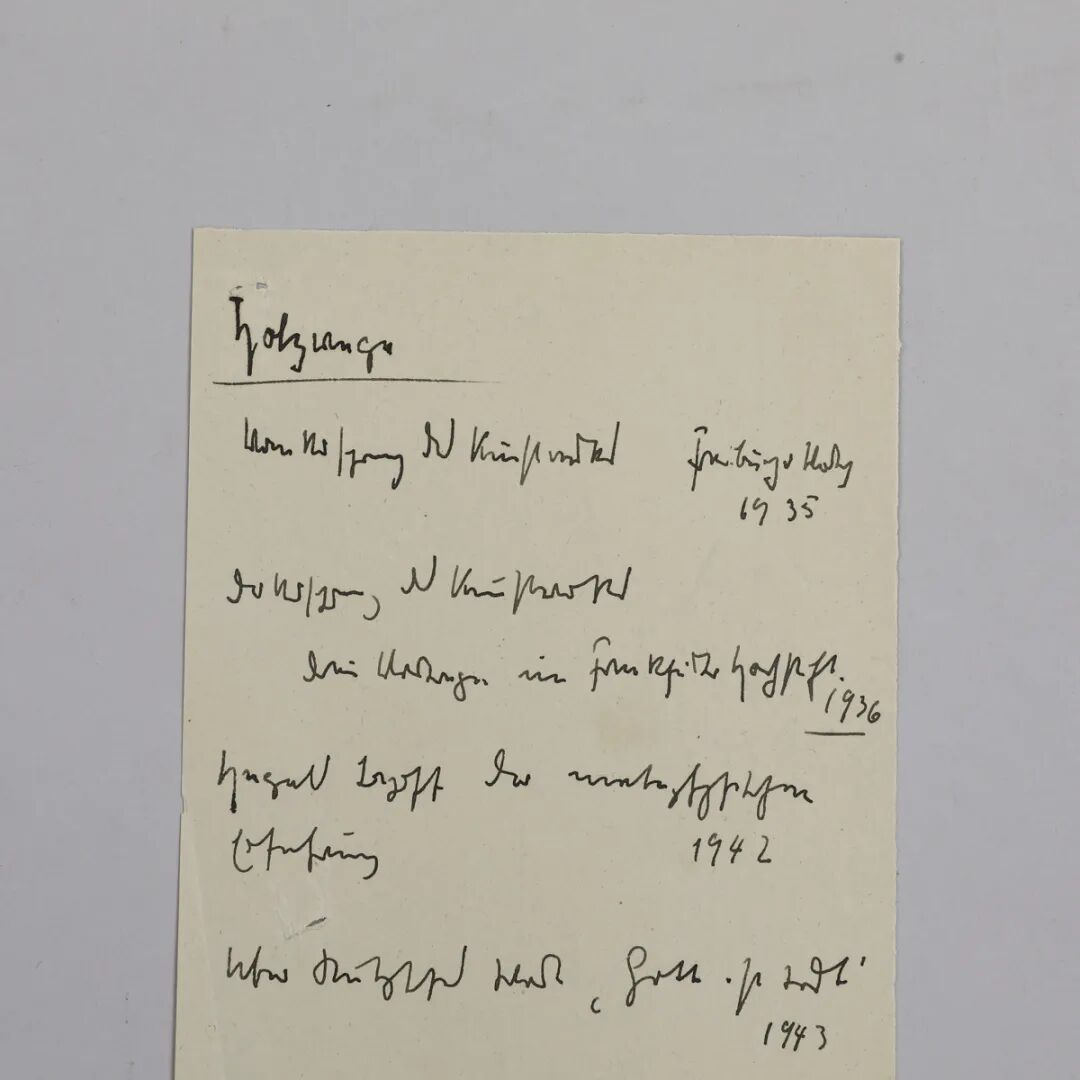 Holzwege
Vom Ursprung des Kunstwerkes Freiburger Vortrag
1935
Der Ursprung des Kunstwerkes
drei Vorträge im Frankfurter Hochstift.
1936
Hegels Begriff der metaphysischen
Erfahrung 1942
Über Nietzsches Wort „Gott ist tot‘
1943